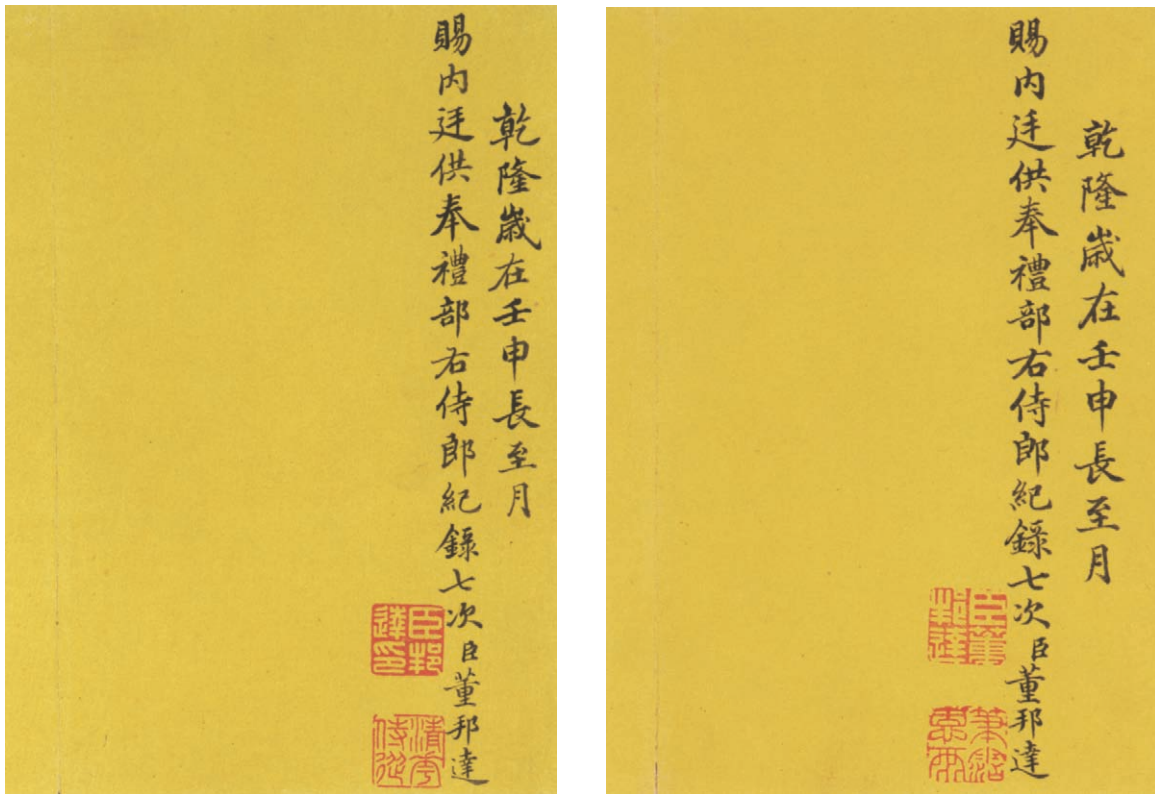 乾隆歲在壬申長至月
賜内廷供奉禮部右侍郎紀錄七次臣董邦達
臣邦達印
乾隆歲在壬申長至月
賜内廷供奉禮部右侍郎紀錄七次臣董邦達
臣董邦達
筆沾恩雨